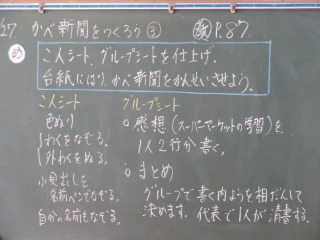 27. かべ新聞をつくろう③ 教P.87
め こ人シート、グループシートを仕上げ、
台紙にはり、かべ新聞をかんせいさせよう。
こ人シート
色ぬり
わくをなぞる。
外わくをぬる。
小見出しを
名前ペンでなぞる。
自分の名前もなぞる。
グループシート
○感想(スーパーマーケットの学習)を
1人2行分書く。
○まとめ
グループで書く内ようを相だんして
決めます。代表で1人が清書する。